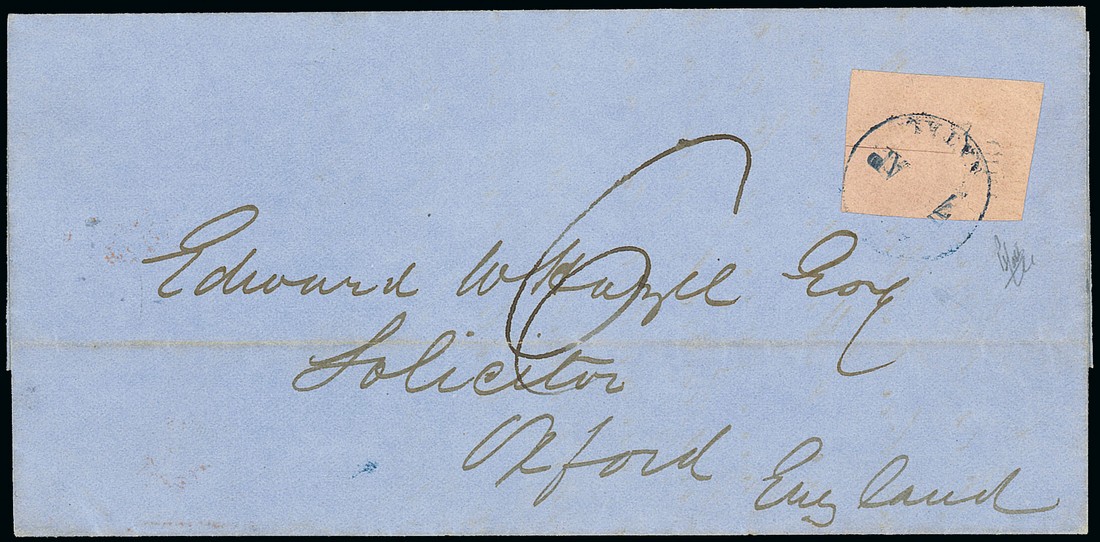 NATAL
6
Edward W Hazell Esq
Solicitor
Oxford
England